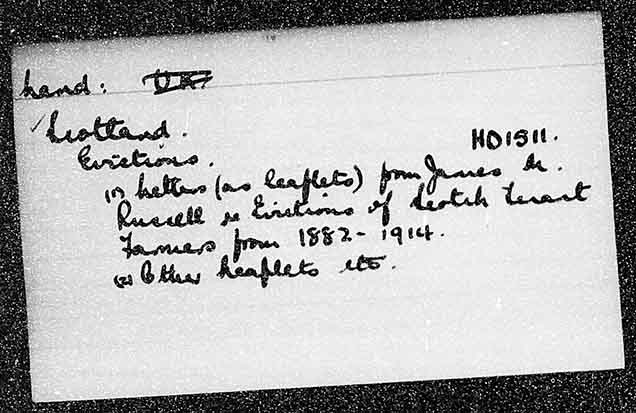 Land: UK
✓ Scotland.
Evictions. HD1511.
(1) Letters (as leaflets) from James M.
Russell re Evictions of Scotch Tenant
Farmers from 1882-1914.
(2) Other Leaflets etc.